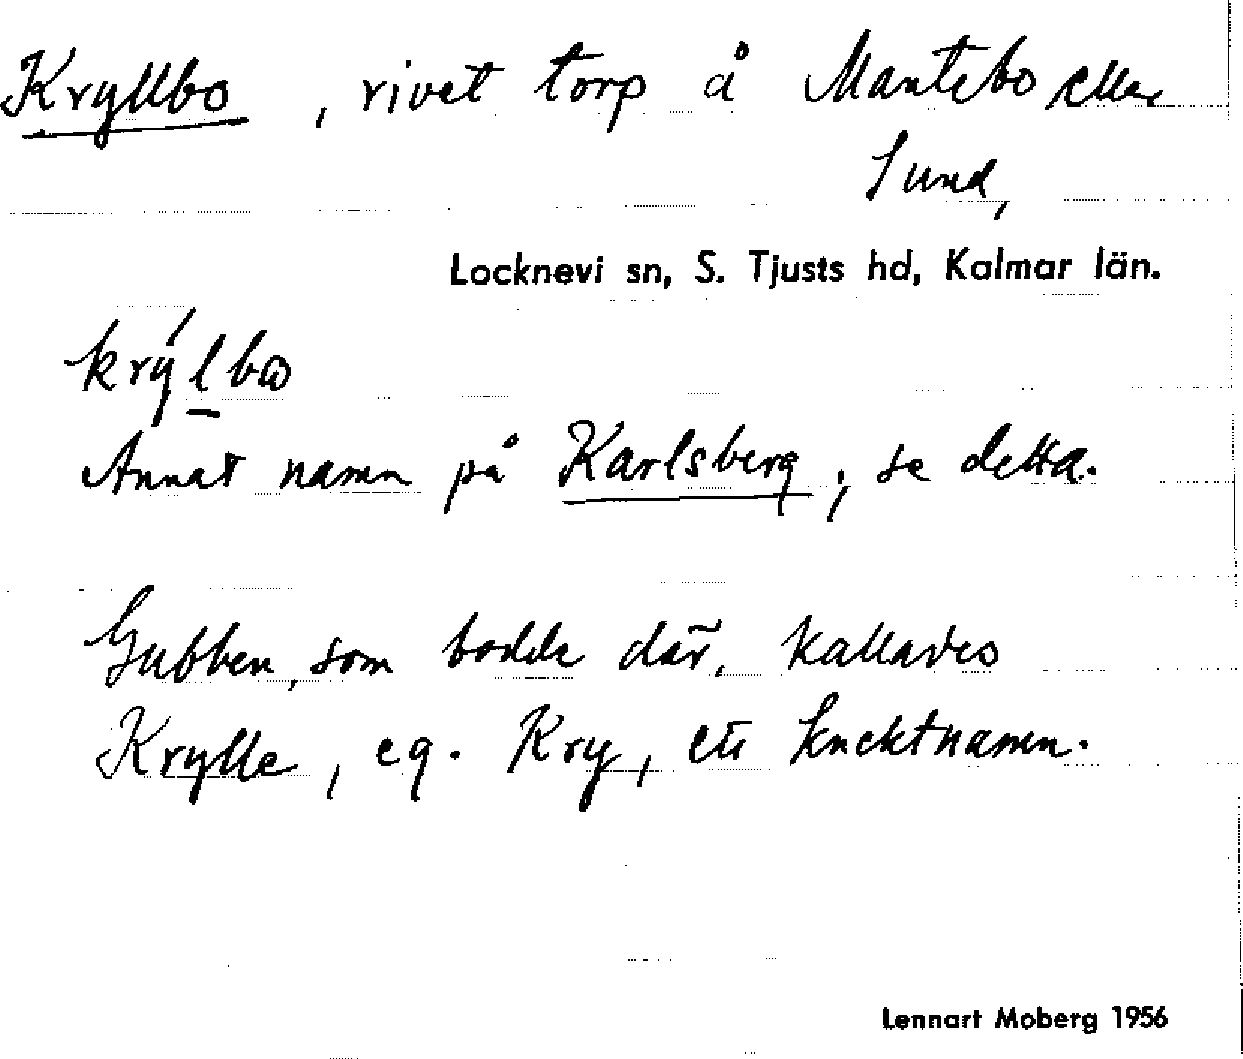 Kryllbo, rivet torp å Mantebo eller
Sund,
Locknevi sn, S. Tjusts hd, Kalmar län.
krýlbω
Annat namn på Karlsberg; se detta.
Gubben, som bodde där, kallades
Krylle, eg. Kry, ett knektnamn.
Lennart Moberg 1956